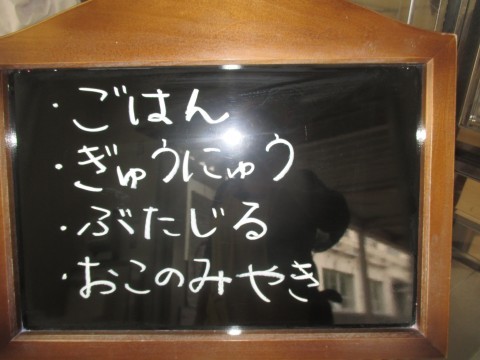 ・ごはん
・ぎゅうにゅう
・ぶたじる
・おこのみやき